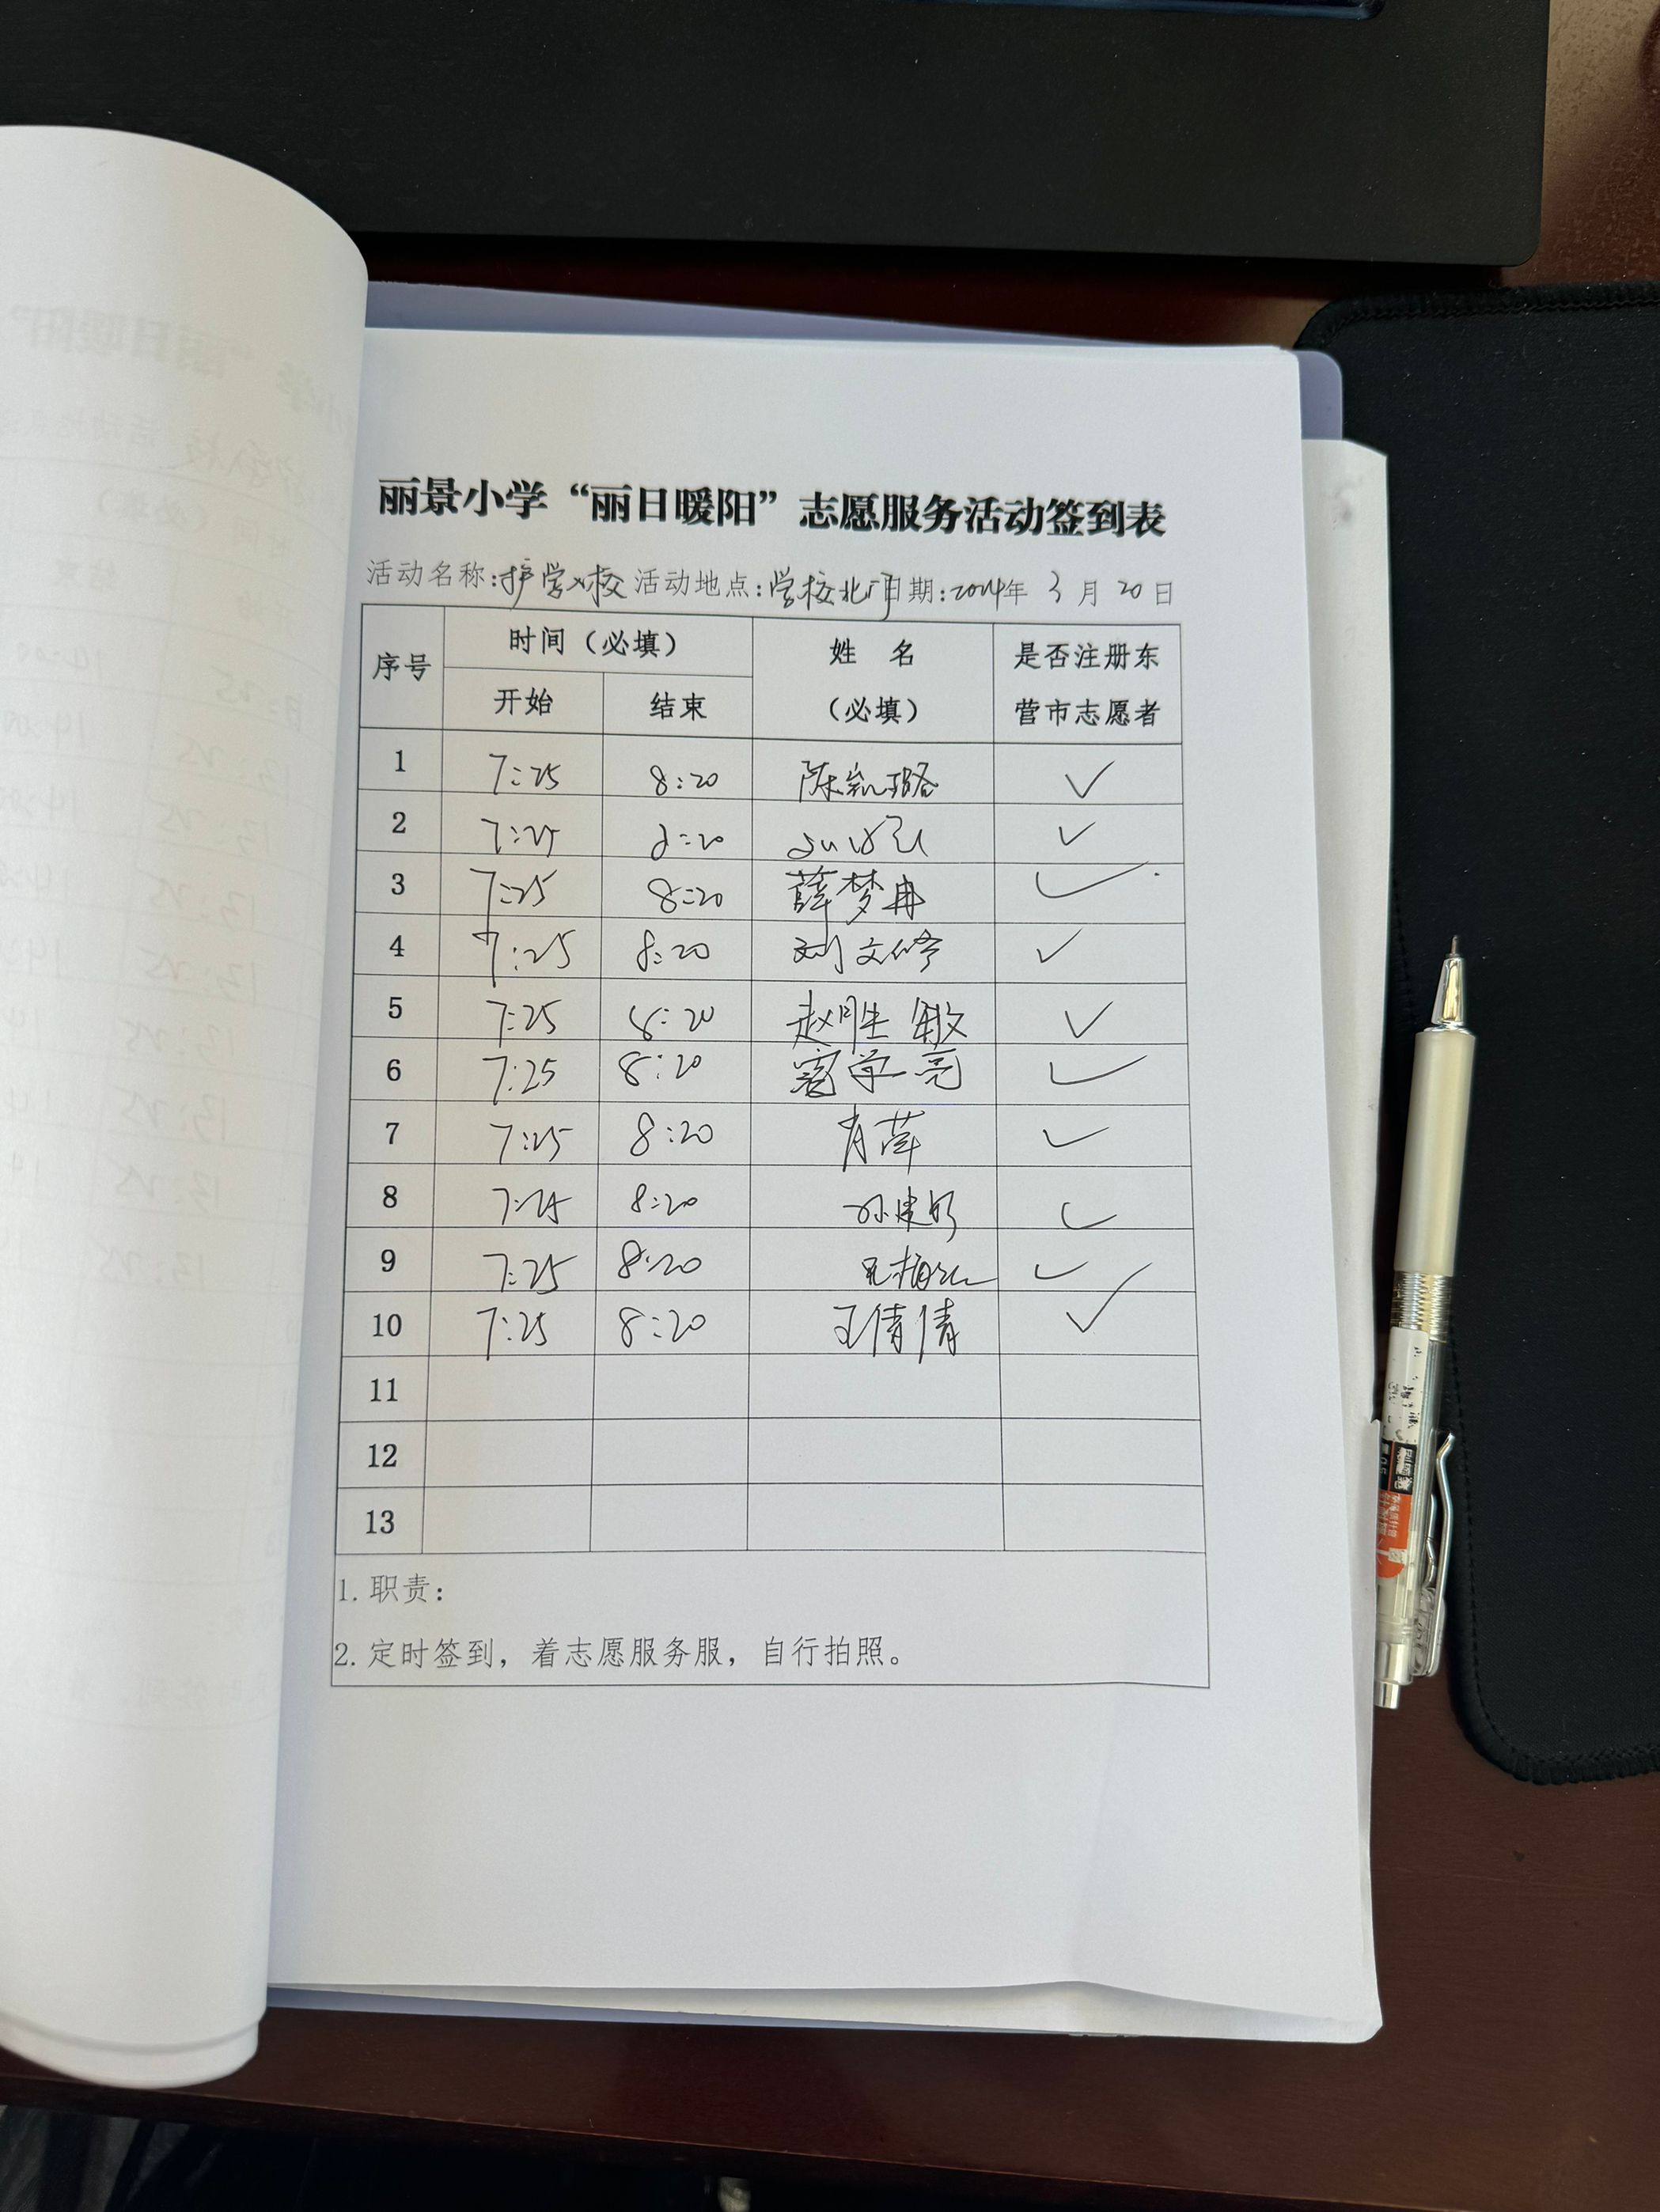 丽景小学“丽日暖阳”志愿服务活动签到表
活动名称:护学入校 活动地点:学校北门 日期:2024年 3月 20日
序号 时间（必填） 姓 名（必填） 是否注册东营市志愿者
开始 结束
1 7:25 8:20 陈凯璐 ✓
2 7:25 8:20 ✓
3 7:25 8:20 薛梦冉 ✓
4 7:25 8:20 刘文修 ✓
5 7:25 8:20 赵胜敏 ✓
6 7:25 8:20 ✓
7 7:25 8:20 肖萍 ✓
8 7:25 8:20 ✓
9 7:25 8:20 ✓
10 7:25 8:20 王倩倩 ✓
11
12
13
1.职责：
2.定时签到，着志愿服务服，自行拍照。